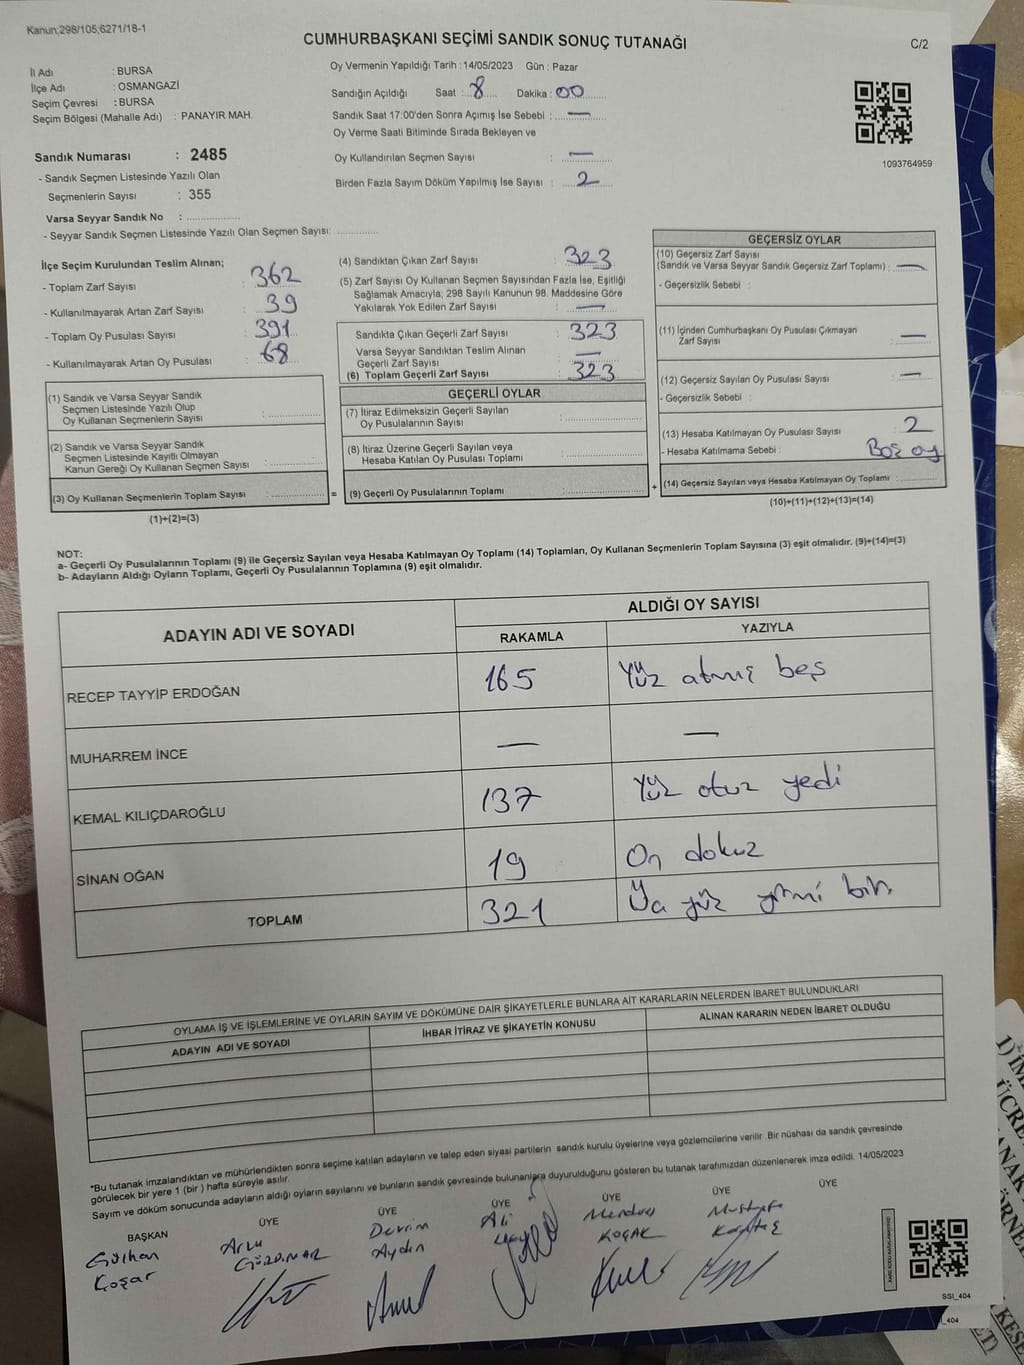 Kanun;298/105;6271/18-1
CUMHURBAŞKANI SEÇİMİ SANDIK SONUÇ TUTANAĞI
C/2
İl Adı : BURSA
İlçe Adı : OSMANGAZİ
Seçim Çevresi : BURSA
Seçim Bölgesi (Mahalle Adı) : PANAYIR MAH.
Sandık Numarası : 2485
- Sandık Seçmen Listesinde Yazılı Olan
Seçmenlerin Sayısı : 355
Varsa Seyyar Sandık No : ..................
- Seyyar Sandık Seçmen Listesinde Yazılı Olan Seçmen Sayısı: .............
Oy Vermenin Yapıldığı Tarih : 14/05/2023 Gün : Pazar
Sandığın Açıldığı Saat : 8 Dakika : 00
Sandık Saat 17:00'den Sonra Açımış İse Sebebi : —
Oy Verme Saati Bitiminde Sırada Bekleyen ve
Oy Kullandırılan Seçmen Sayısı : —
Birden Fazla Sayım Döküm Yapılmış İse Sayısı : 2
1093764959
İlçe Seçim Kurulundan Teslim Alınan;
- Toplam Zarf Sayısı : 362
- Kullanılmayarak Artan Zarf Sayısı : 39
- Toplam Oy Pusulası Sayısı : 391
- Kullanılmayarak Artan Oy Pusulası : 68
(1) Sandık ve Varsa Seyyar Sandık
Seçmen Listesinde Yazılı Olup
Oy Kullanan Seçmenlerin Sayısı : ..............
(2) Sandık ve Varsa Seyyar Sandık
Seçmen Listesinde Kayıtlı Olmayan
Kanun Gereği Oy Kullanan Seçmen Sayısı : ..............
(3) Oy Kullanan Seçmenlerin Toplam Sayısı : ..............
(1)+(2)=(3)
(4) Sandıktan Çıkan Zarf Sayısı : 323
(5) Zarf Sayısı Oy Kullanan Seçmen Sayısından Fazla İse, Eşitliği
Sağlamak Amacıyla; 298 Sayılı Kanunun 98. Maddesine Göre
Yakılarak Yok Edilen Zarf Sayısı : —
Sandıkta Çıkan Geçerli Zarf Sayısı : 323
Varsa Seyyar Sandıktan Teslim Alınan
Geçerli Zarf Sayısı : —
(6) Toplam Geçerli Zarf Sayısı : 323
GEÇERLİ OYLAR
(7) İtiraz Edilmeksizin Geçerli Sayılan
Oy Pusulalarının Sayısı : ..............
(8) İtiraz Üzerine Geçerli Sayılan veya
Hesaba Katılan Oy Pusulası Toplamı : ..............
= (9) Geçerli Oy Pusulalarının Toplamı : ..............
GEÇERSİZ OYLAR
(10) Geçersiz Zarf Sayısı
(Sandık ve Varsa Seyyar Sandık Geçersiz Zarf Toplamı) : —
- Geçersizlik Sebebi :
(11) İçinden Cumhurbaşkanı Oy Pusulası Çıkmayan
Zarf Sayısı : —
(12) Geçersiz Sayılan Oy Pusulası Sayısı : —
- Geçersizlik Sebebi :
(13) Hesaba Katılmayan Oy Pusulası Sayısı : 2
- Hesaba Katılmama Sebebi : Boş oy
+ (14) Geçersiz Sayılan veya Hesaba Katılmayan Oy Toplamı : ..............
(10)+(11)+(12)+(13)=(14)
NOT:
a- Geçerli Oy Pusulalarının Toplamı (9) ile Geçersiz Sayılan veya Hesaba Katılmayan Oy Toplamı (14) Toplamları, Oy Kullanan Seçmenlerin Toplam Sayısına (3) eşit olmalıdır. (9)+(14)=(3)
b- Adayların Aldığı Oyların Toplamı, Geçerli Oy Pusulalarının Toplamına (9) eşit olmalıdır.
ADAYIN ADI VE SOYADI
ALDIĞI OY SAYISI
RAKAMLA YAZIYLA
RECEP TAYYİP ERDOĞAN 165 Yüz atmış beş
MUHARREM İNCE — —
KEMAL KILIÇDAROĞLU 137 Yüz otuz yedi
SİNAN OĞAN 19 On dokuz
TOPLAM 321 Üç yüz yirmi bir.
OYLAMA İŞ VE İŞLEMLERİNE VE OYLARIN SAYIM VE DÖKÜMÜNE DAİR ŞİKAYETLERLE BUNLARA AİT KARARLARIN NELERDEN İBARET BULUNDUKLARI
ADAYIN ADI VE SOYADI İHBAR İTİRAZ VE ŞİKAYETİN KONUSU ALINAN KARARIN NEDEN İBARET OLDUĞU
*Bu tutanak imzalandıktan ve mühürlendikten sonra seçime katılan adayların ve talep eden siyasi partilerin sandık kurulu üyelerine veya gözlemcilerine verilir. Bir nüshası da sandık çevresinde
görülecek bir yere 1 (bir ) hafta süreyle asılır.
Sayım ve döküm sonucunda adayların aldığı oyların sayılarını ve bunların sandık çevresinde bulunanlara duyurulduğunu gösteren bu tutanak tarafımızdan düzenlenerek imza edildi. 14/05/2023
BAŞKAN ÜYE ÜYE ÜYE ÜYE ÜYE ÜYE
Gülhan Arzu Devrim Ali Mustafa
Koşar Aydın KOÇAK
SSI_404
_404
1) İM
ÜCRE